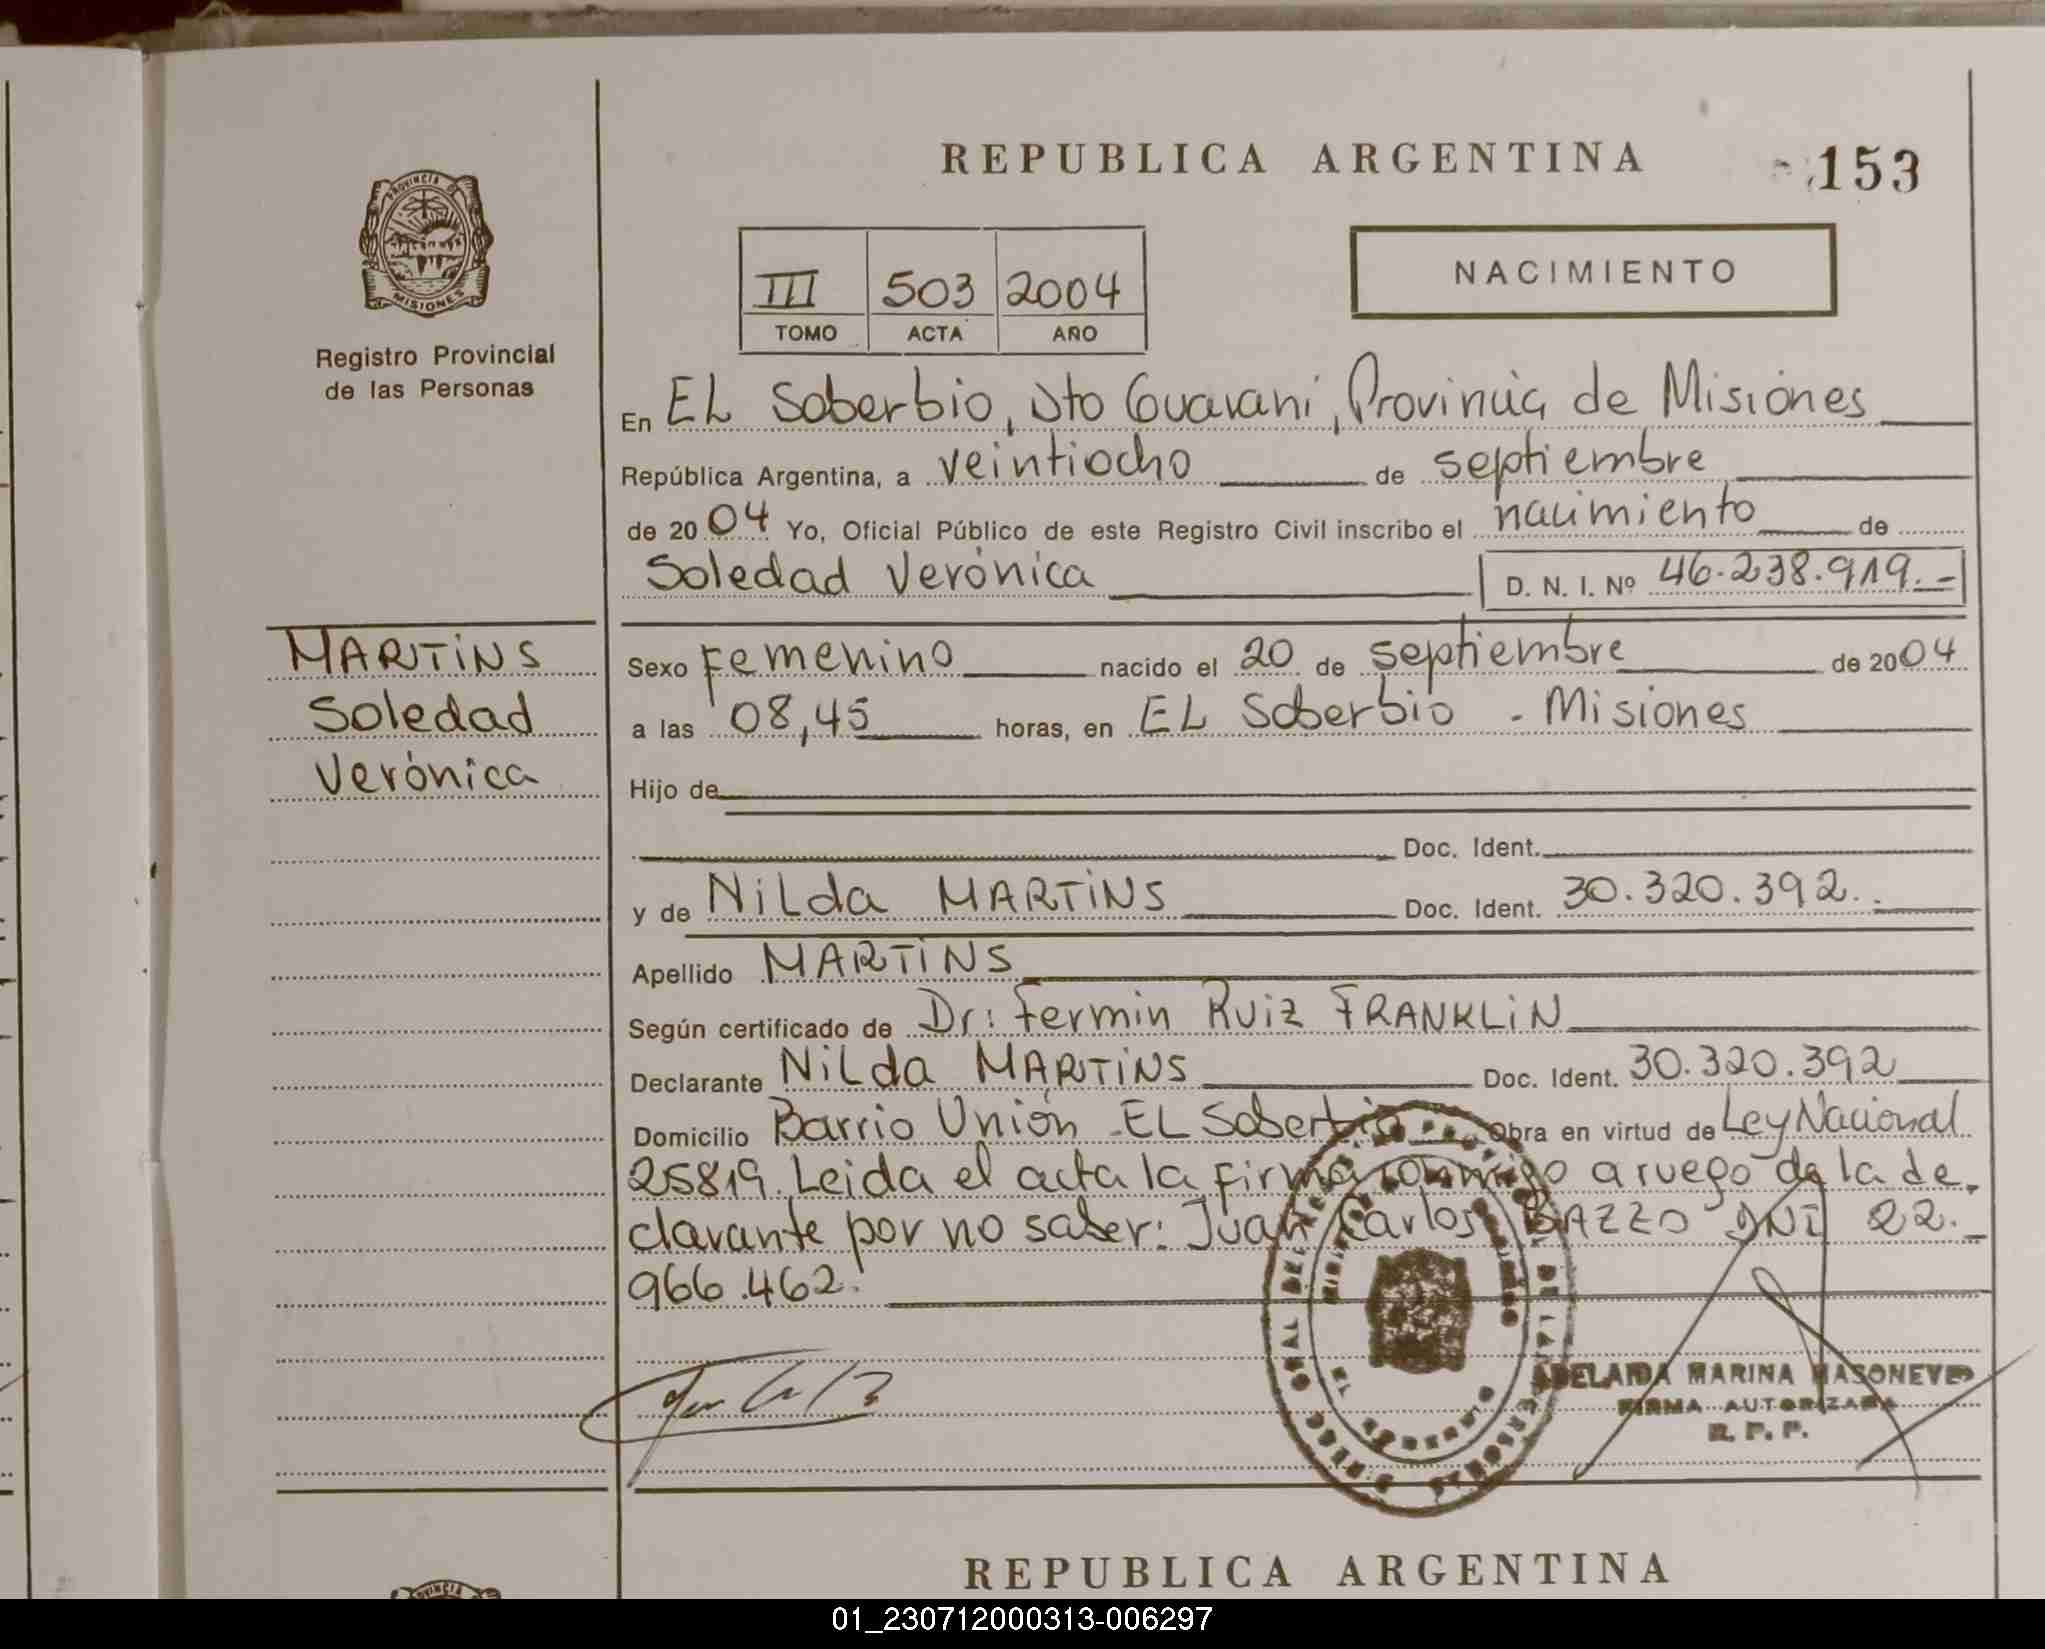 REPUBLICA ARGENTINA
153
PROVINCIA DE
MISIONES
Registro Provincial
de las Personas
III 503 2004
TOMO ACTA AÑO
NACIMIENTO
En EL Soberbio, Dto Guaraní, Provincia de Misiones
República Argentina, a veintiocho de septiembre
de 2004 Yo, Oficial Público de este Registro Civil inscribo el nacimiento de
Soledad Verónica D. N. I. Nº 46.238.919.-
MARTINS
Soledad
Verónica
Sexo Femenino nacido el 20 de septiembre de 2004
a las 08,45 horas, en EL Soberbio - Misiones
Hijo de
Doc. Ident.
y de Nilda MARTINS Doc. Ident. 30.320.392.
Apellido MARTINS
Según certificado de Dr: Fermin Ruiz FRANKLIN
Declarante Nilda MARTINS Doc. Ident. 30.320.392
Domicilio Barrio Unión EL Soberbio Obra en virtud de Ley Nacional
25819. Leida el acta la firma conmigo a ruego de la de
clarante por no saber: Juan Carlos BAZZO DNI 22.
966.462.
ADELAIDA MARINA
FIRMA AUTORIZADA
R. P. P.
REPUBLICA ARGENTINA
01_230712000313-006297